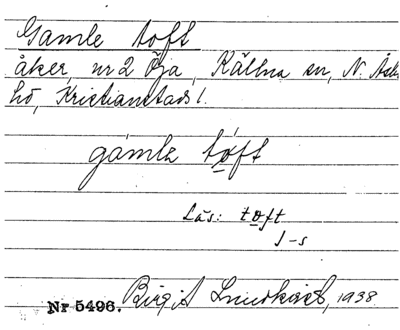 Gamle toft
åker, nr 2 Öja, Källna sn, N. Ås-
bo, Kristianstads l.
gámlə tóft
Läs: toft
1-s
Nr 5496. Birgit Lindkvist, 1938